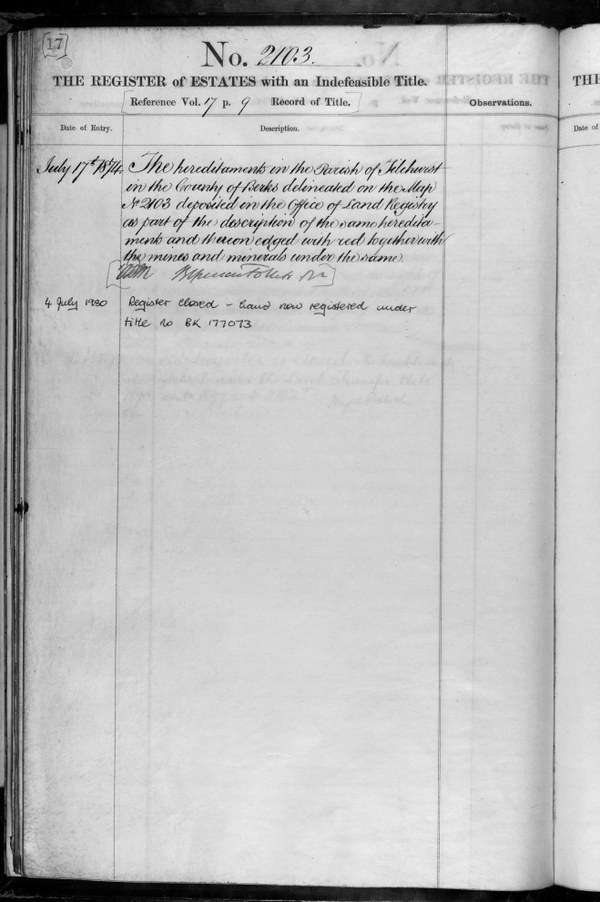 17
No. 2103.
THE REGISTER of ESTATES with an Indefeasible Title.
Reference Vol. 17 p. 9 Record of Title.
Observations.
Date of Entry.
Description.
July 17th 1874.
The hereditaments in the Parish of Tilehurst
in the County of Berks delineated on the Map
No 2103 deposited in the Office of Land Registry
as part of the description of the same heredita-
ments and thereon edged with red together with
the mines and minerals under the same
4 July 1980
Register closed - Land now registered under
title no BK 177073
THE
Date of